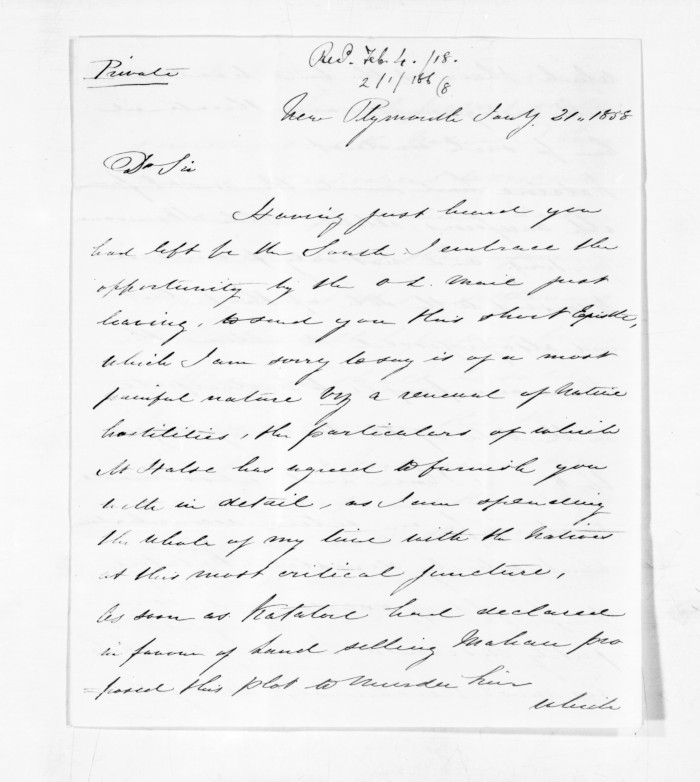 Private
Recd. Feb. 4. /18.
2/1/186/8
New Plymouth Jany. 21. 1858
Dr Sir
Having just heard you
had left for the South I embrace the
opportunity by the O.L. Mail just
leaving, to send you this short Epistle,
which I am sorry to say is of a most
painful nature viz a renewal of Native
hostilities, the particulars of which
Mr Halse has agreed to furnish you
with in detail, as I am spending
the whole of my time with the Natives
at this most critical juncture,
As soon as Katatore had declared
in favour of Land selling Mahau pro
=posed this plot to Murder him
which